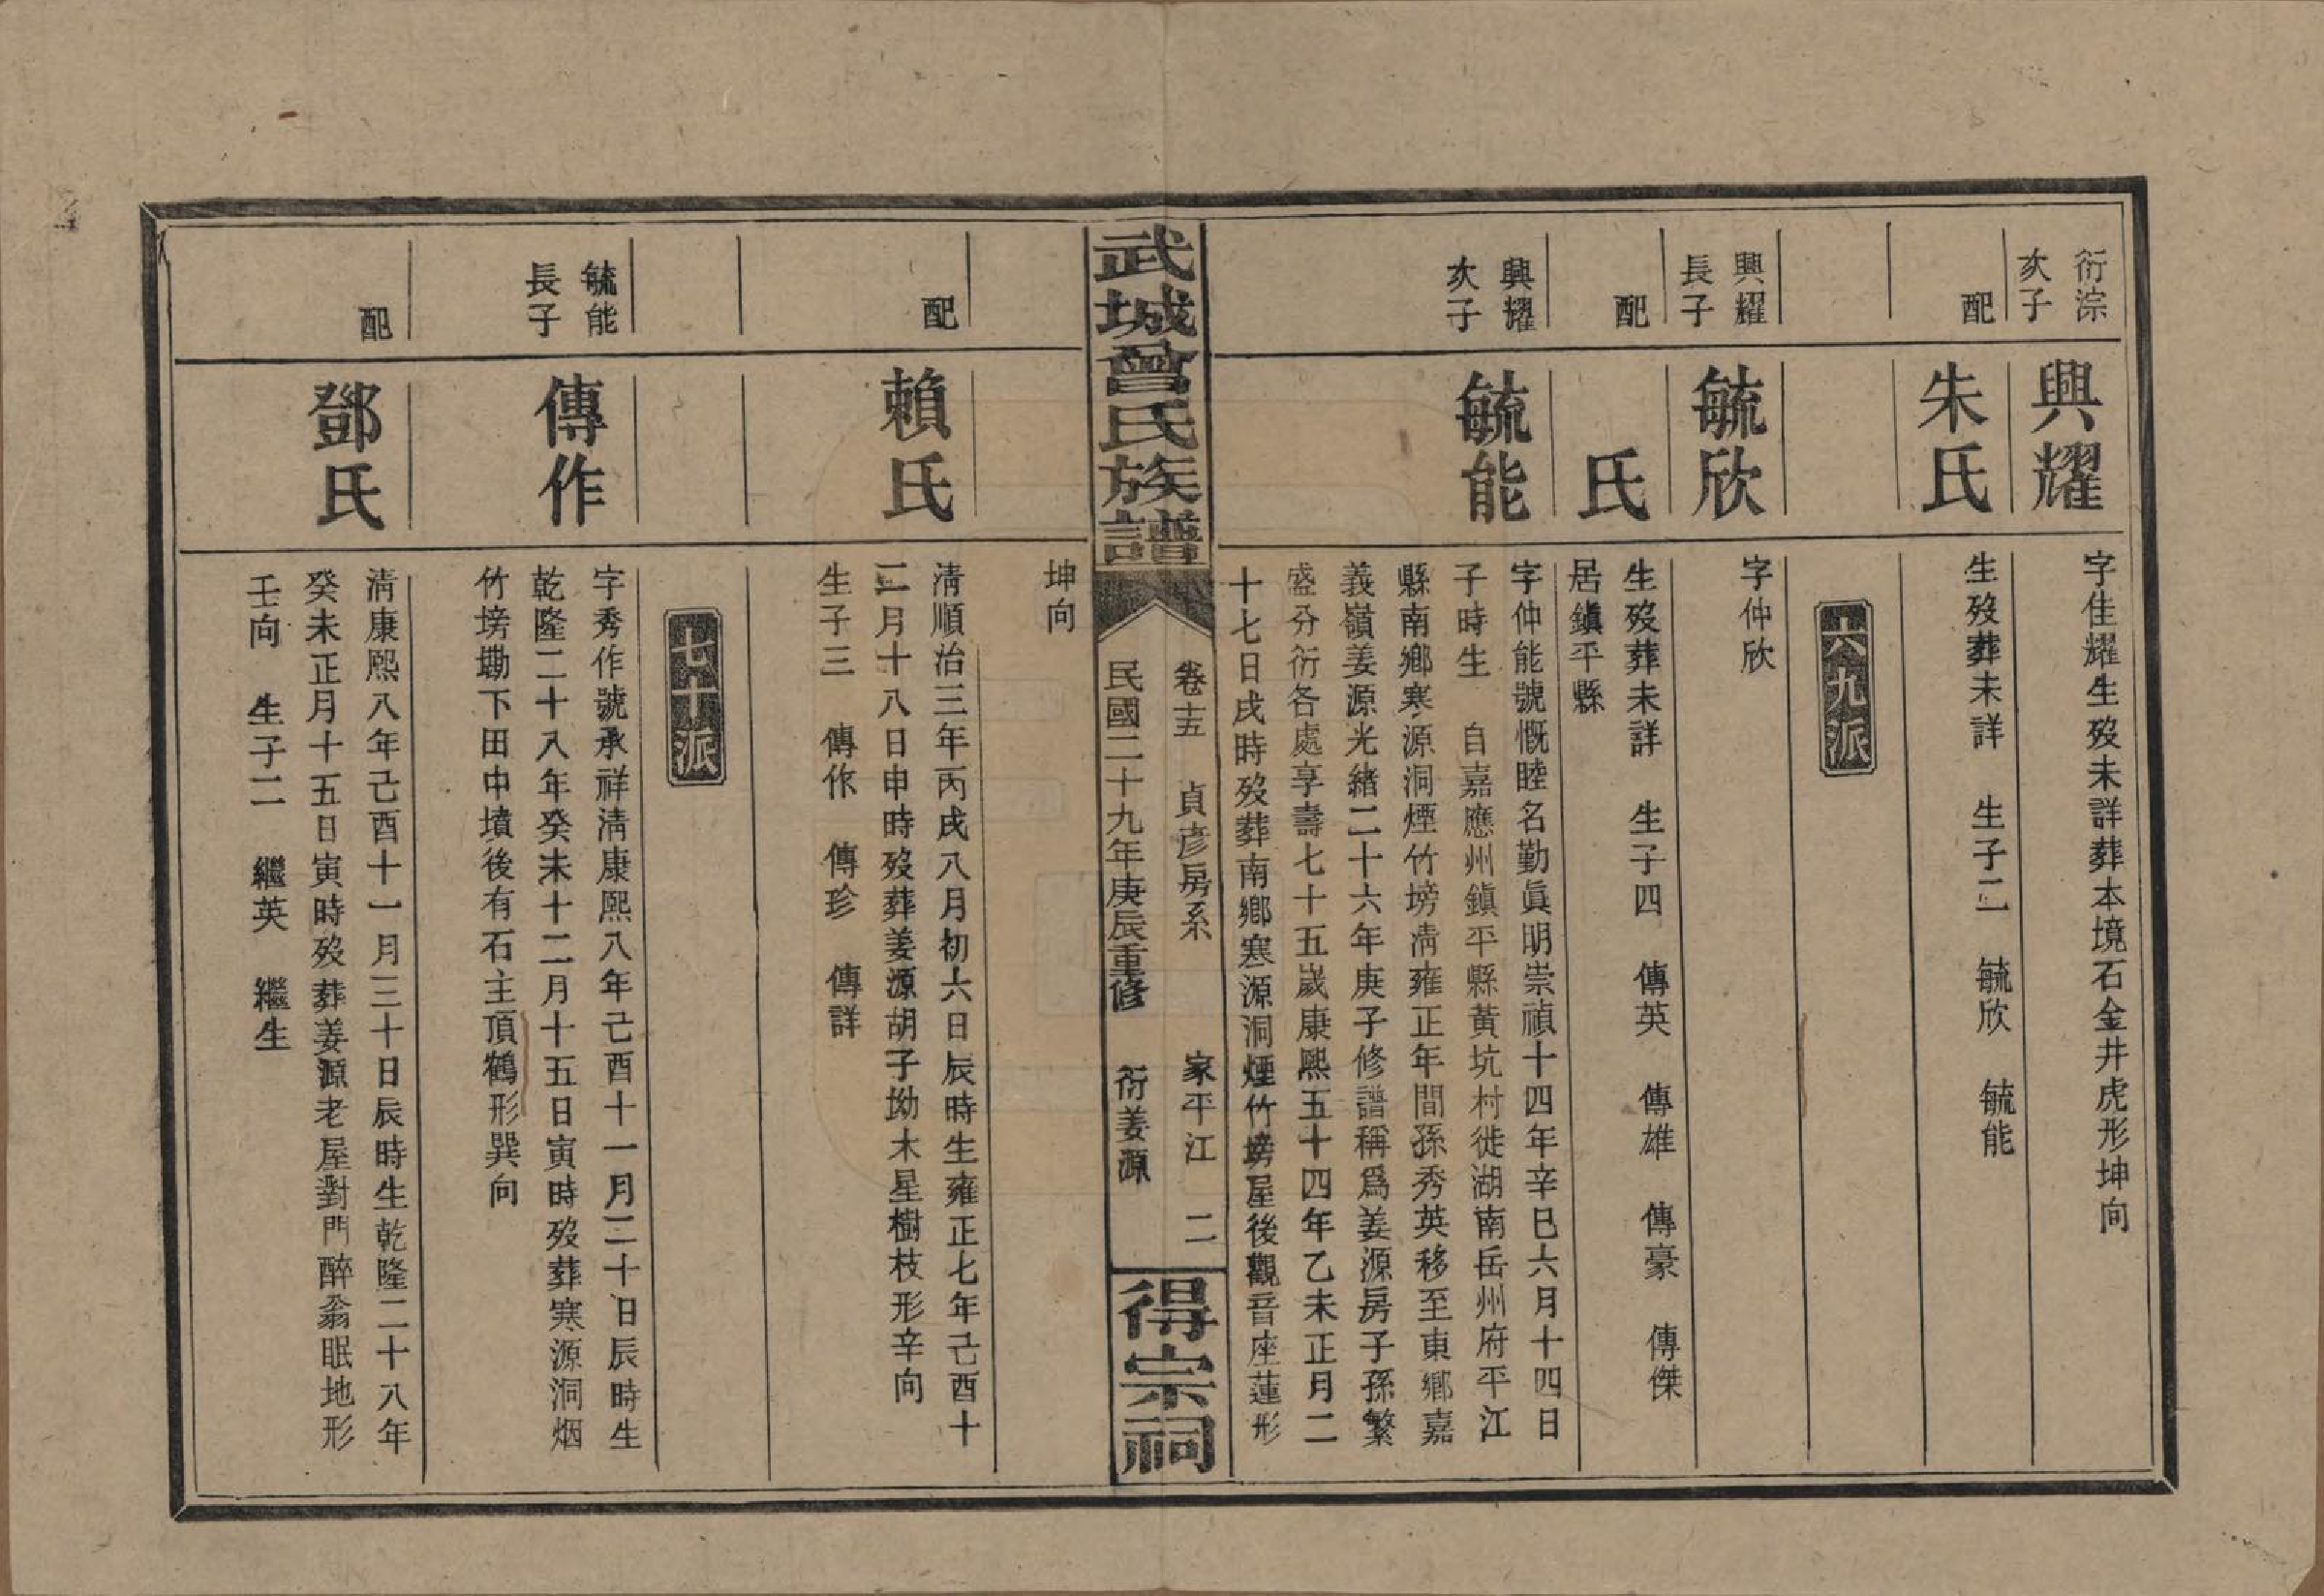 衍淙
次子
興耀
字佳耀生歿未詳葬本境石金井虎形坤向
配
朱氏
生歿葬未詳　生子二　毓欣　毓能
六九派
興耀
長子
毓欣
字仲欣
配
氏
生歿葬未詳　生子四　傳英　傳雄　傳豪　傳傑
居鎮平縣
興耀
次子
毓能
字仲能號慨睦名勤眞明崇禎十四年辛巳六月十四日
子時生　自嘉應州鎮平縣黃坑村徙湖南岳州府平江
縣南鄉寒源洞煙竹塝淸雍正年間孫秀英移至東鄉嘉
義嶺姜源光緒二十六年庚子修譜稱爲姜源房子孫繁
盛分衍各處享壽七十五歲康熙五十四年乙未正月二
十七日戌時歿葬南鄉寒源洞煙竹塝屋後觀音座蓮形
武城曾氏族譜
卷十五　貞彥房系　家平江　二
民國二十九年庚辰重修　衍姜源
得宗祠
坤向
配
賴氏
淸順治三年丙戌八月初六日辰時生雍正七年己酉十
二月十八日申時歿葬姜源胡子坳木星樹枝形辛向
生子三　傳作　傳珍　傳詳
七十派
毓能
長子
傳作
字秀作號承祥淸康熙八年己酉十一月三十日辰時生
乾隆二十八年癸未十二月十五日寅時歿葬寒源洞烟
竹塝墈下田中墳後有石主頂鶴形巽向
配
鄧氏
淸康熙八年己酉十一月三十日辰時生乾隆二十八年
癸未正月十五日寅時歿葬姜源老屋對門醉翁眠地形
壬向　生子二　繼英　繼生